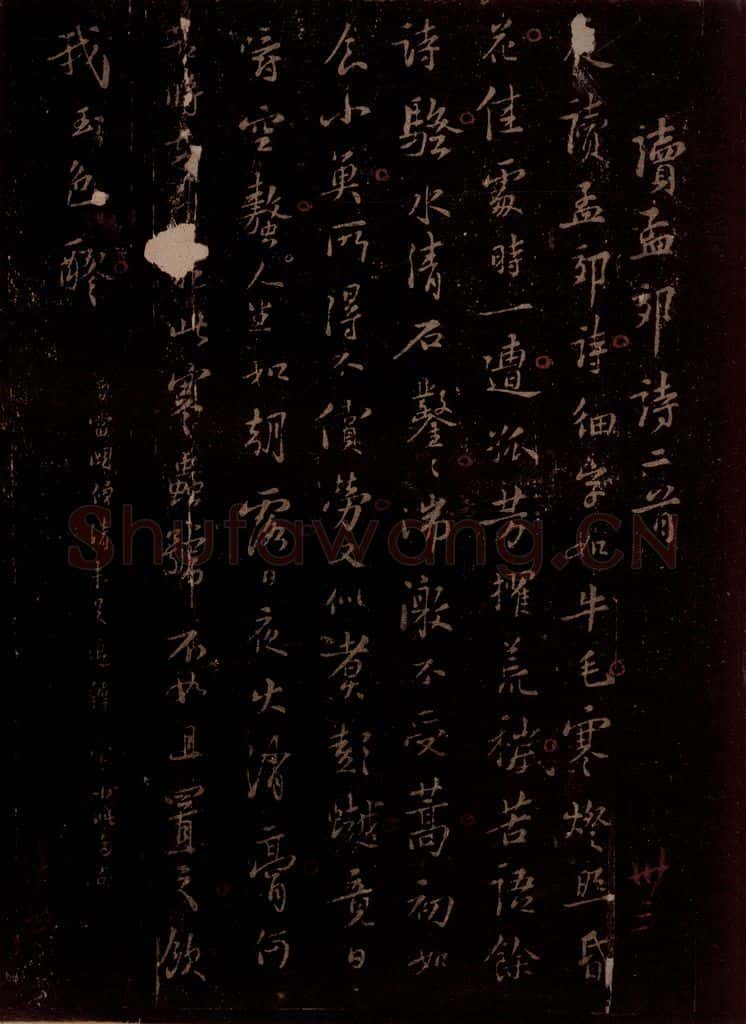 讀孟郊詩二首
夜讀孟郊詩細字如牛毛寒燈照昏
花佳處時一遭孤芳擢荒穢苦語餘
詩騷水清石鑿〻湍激不受篙初如
食小魚所得不償勞又似煮彭竟日
空螯人生如朝露日夜火消膏何
苦將此寒蟲號不如且置之飲
我玉色醪
卅三
Shufawang.CN